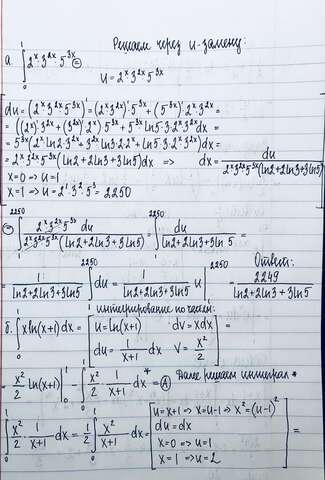 Решаем через u-замену:
а. ∫₀¹ 2ˣ·3²ˣ·5³ˣ ⊜
u = 2ˣ·3²ˣ·5³ˣ
du = (2ˣ·3²ˣ·5³ˣ)' = (2ˣ·3²ˣ)'·5³ˣ + (5³ˣ)'·2ˣ·3²ˣ =
= ((2ˣ)'·3²ˣ + (3²ˣ)'·2ˣ)·5³ˣ + 5³ˣ·ln5·3·2ˣ·3²ˣ dx =
= 5³ˣ(2ˣ·ln2·3²ˣ + 3²ˣ·ln3·2·2ˣ + ln5·3·2ˣ·3²ˣ)dx =
= 2ˣ·3²ˣ·5³ˣ(ln2+2ln3+3ln5)dx => dx = du / 2ˣ·3²ˣ·5³ˣ(ln2+2ln3+3ln5)
x=0 => u=1
x=1 => u = 2¹·3²·5³ = 2250
⊜ ∫₁²²⁵⁰ 2ˣ·3²ˣ·5³ˣ du / 2ˣ·3²ˣ·5³ˣ(ln2+2ln3+3ln5) = ∫₁²²⁵⁰ du / (ln2+2ln3+3ln5) =
Ответ:
= 1 / (ln2+2ln3+3ln5) ∫₁²²⁵⁰ du = 1 / (ln2+2ln3+3ln5) u |₁²²⁵⁰ = 2249 / (ln2+2ln3+3ln5)
интегрирование по частям:
б. ∫₀¹ x ln(x+1) dx = [u = ln(x+1) dv = xdx
du = 1/(x+1) dx v = x²/2] =
= x²/2 ln(x+1) |₀¹ - ∫₀¹ x²/2 · 1/(x+1) dx* = Ⓐ Далее решаем интеграл *
∫₀¹ x²/2 · 1/(x+1) dx = 1/2 ∫₀¹ x²/(x+1) dx = [u = x+1 => x = u-1 => x² = (u-1)²
du = dx
x=0 => u=1
x=1 => u=2] =